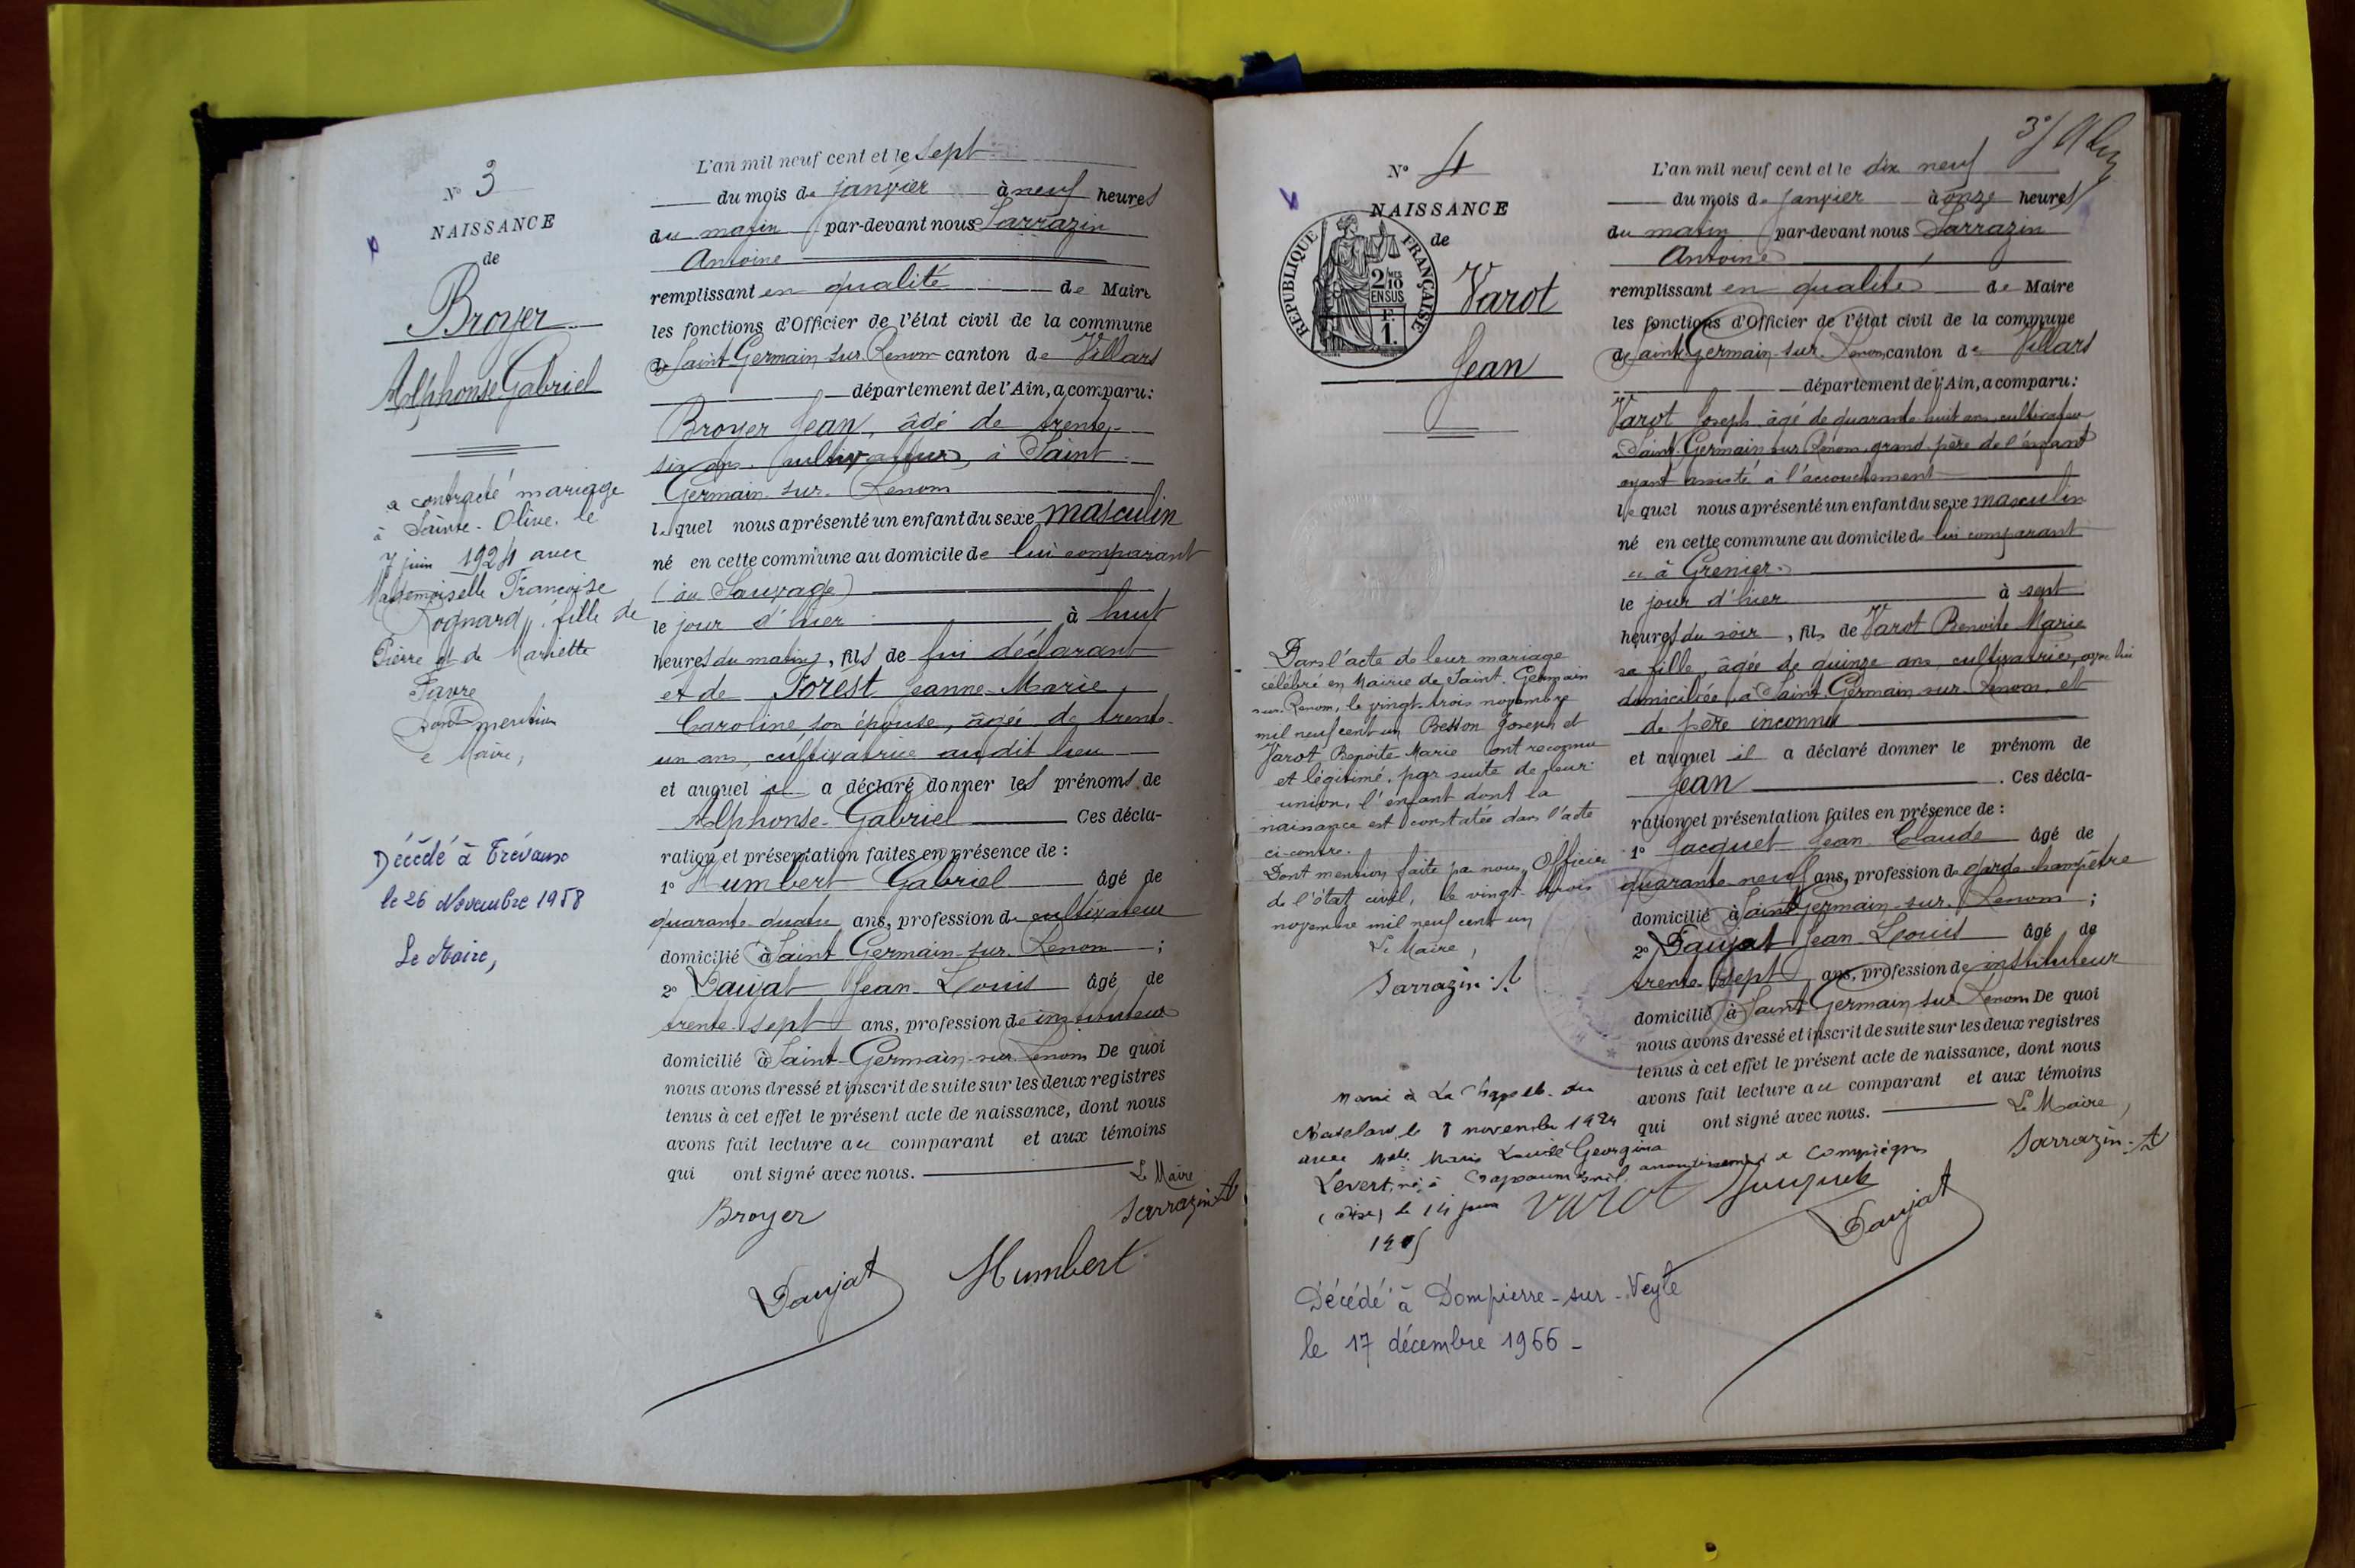 N° 3
NAISSANCE
de
Broyer
Alphonse Gabriel
a contracté mariage
à Sainte-Olive, le
7 juin 1924 avec
Mademoiselle Françoise
Rognard, fille de
Pierre et de Mariette
Favre
Dont mention
Le Maire,
Décédé à Trévoux
le 26 Novembre 1958
Le Maire,
L'an mil neuf cent et le sept
du mois de janvier à neuf heures
du matin par-devant nous Sarrazin
Antoine
remplissant en qualité de Maire
les fonctions d'Officier de l'état civil de la commune
de Saint-Germain-sur-Renom canton de Villars
département de l'Ain, a comparu:
Broyer Jean, âgé de trente-
six ans, cultivateur, à Saint-
Germain-sur-Renom
lequel nous a présenté un enfant du sexe masculin
né en cette commune au domicile de lui comparant
(au Sauvage)
le jour d'hier à huit
heures du matin, fils de lui déclarant
et de Forest Jeanne-Marie
Caroline, son épouse, âgée de trente-
un ans, cultivatrice au dit lieu
et auquel il a déclaré donner les prénoms de
Alphonse-Gabriel Ces décla-
ration et présentation faites en présence de :
1° Humbert Gabriel âgé de
quarante-quatre ans, profession de cultivateur
domicilié à Saint Germain-sur-Renom ;
2° Daujat Jean-Louis âgé de
trente-sept ans, profession de instituteur
domicilié à Saint-Germain-sur-Renom De quoi
nous avons dressé et inscrit de suite sur les deux registres
tenus à cet effet le présent acte de naissance, dont nous
avons fait lecture au comparant et aux témoins
qui ont signé avec nous.
Le Maire
Broyer Sarrazin A
Daujat Humbert
3°/
N° 4
NAISSANCE
de
RÉPUBLIQUE FRANÇAISE
2/10 MES
EN SUS
1 F.
Varot
Jean
Dans l'acte de leur mariage
célébré en Mairie de Saint-Germain
sur-Renom, le vingt-trois novembre
mil neuf cent un Besson Joseph et
Varot Benoîte-Marie ont reconnu
et légitimé, par suite de leur
union, l'enfant dont la
naissance est constatée dans l'acte
ci-contre.
Dont mention faite par nous, Officier
de l'état civil, le vingt-trois
novembre mil neuf cent un
Le Maire,
Sarrazin A
Marié à La Chapelle-du
Chatelard, le 8 novembre 1924
avec Melle Marie Louise Georgina
Levert, née à arrondissement de Compiègne
(Oise) le 14 juin
1905
Décédé à Dompierre-sur-Veyle
le 17 décembre 1966 -
L'an mil neuf cent et le dix neuf
du mois de janvier à onze heures
du matin par-devant nous Sarrazin
Antoine
remplissant en qualité de Maire
les fonctions d'Officier de l'état civil de la commune
de Saint-Germain-sur-Renom canton de Villars
département de l'Ain, a comparu:
Varot Joseph âgé de quarante-huit ans, cultivateur
à Saint-Germain-sur-Renom, grand-père de l'enfant
ayant assisté à l'accouchement
lequel nous a présenté un enfant du sexe masculin
né en cette commune au domicile de lui comparant
à Grenier.
le jour d'hier à sept
heures du soir, fils de Varot Benoite Marie
sa fille, âgée de quinze ans, cultivatrice, avec lui
domiciliée, à Saint-Germain-sur-Renom, et
de père inconnu
et auquel il a déclaré donner le prénom de
Jean . Ces décla-
ration et présentation faites en présence de :
1° Jacquet Jean-Claude âgé de
quarante-neuf ans, profession de garde-champêtre
domicilié à Saint-Germain-sur-Renom ;
2° Daujat Jean-Louis âgé de
trente-sept ans, profession de instituteur
domicilié à Saint-Germain-sur-Renom De quoi
nous avons dressé et inscrit de suite sur les deux registres
tenus à cet effet le présent acte de naissance, dont nous
avons fait lecture au comparant et aux témoins
qui ont signé avec nous. Le Maire,
Sarrazin A
Varot Jacquet
Daujat